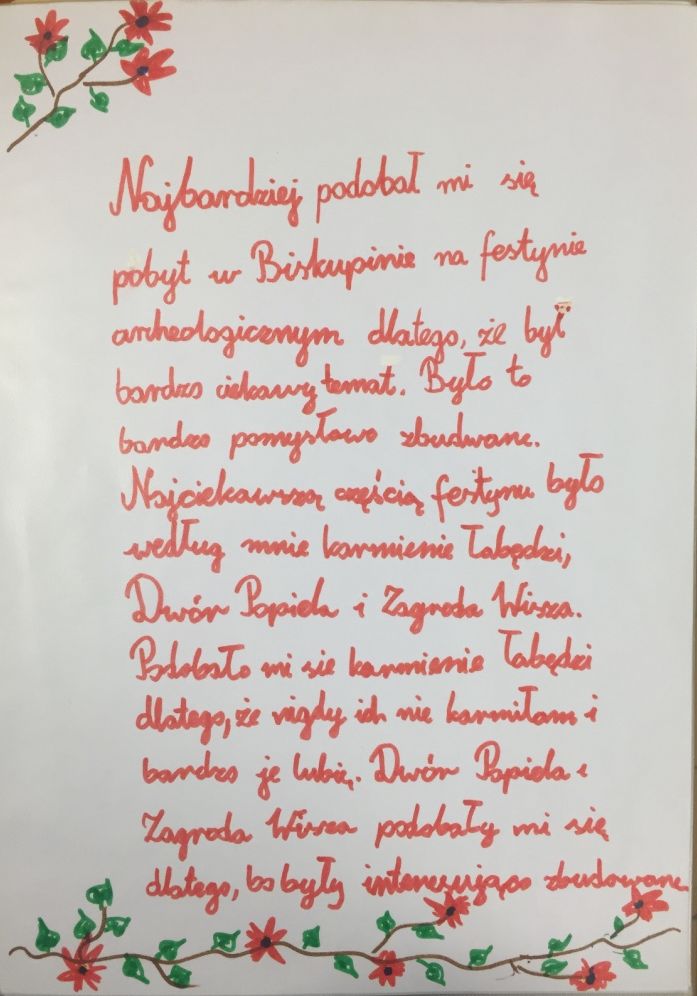 Najbardziej podobał mi się
pobyt w Biskupinie na festynie
archeologicznym dlatego, że był
bardzo ciekawy temat. Było to
bardzo pomysłowo zbudwane.
Najciekawszą częścią festynu było
według mnie karmienie łabędzi,
Dwór Popiela i Zagroda Wisza.
Podobało mi sie karmienie łabędzi
dlatego, że nigdy ich nie karmiłam i
bardzo je lubię. Dwór Popiela i
Zagroda Wisza podobały mi się
dlatego, bo były interesująco zbudowane